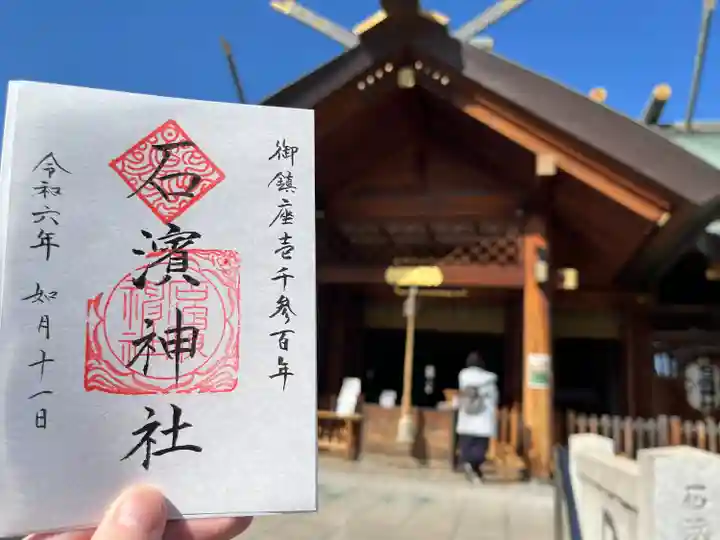 御鎮座壱千参百年
石濱神社
令和六年 如月十一日
石濱